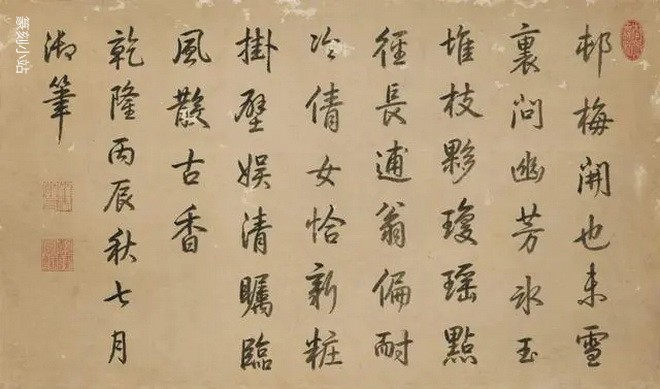 邨梅開也未雪
裏問幽芳氷玉
堆枝夥瓊瑤點
徑長逋翁偏耐
冷倩女恰新粧
掛壁娱清矚臨
風散古香
乾隆丙辰秋七月
御筆
篆刻小站